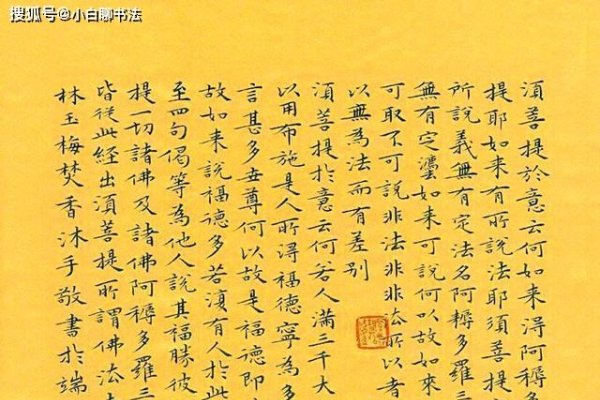 搜狐号@小白聊书法
須菩提於意云何如來得阿耨
提耶如來有所說法耶須菩提
所說義無有定法名阿耨多羅三
無有定灋如來可說何以故如來
可取不可說非法非非法所以者
以無為法而有差別
須菩提於意云何若人滿三千大
以用布施是人所得福德寧為多
言甚多世尊何以故是福德即
故如來說福德多若復有人於此
至四句偈等為他人說其福勝彼
提一切諸佛及諸佛阿耨多羅三
皆從此經出須菩提所謂佛法
林玉梅焚香沐手敬書於端